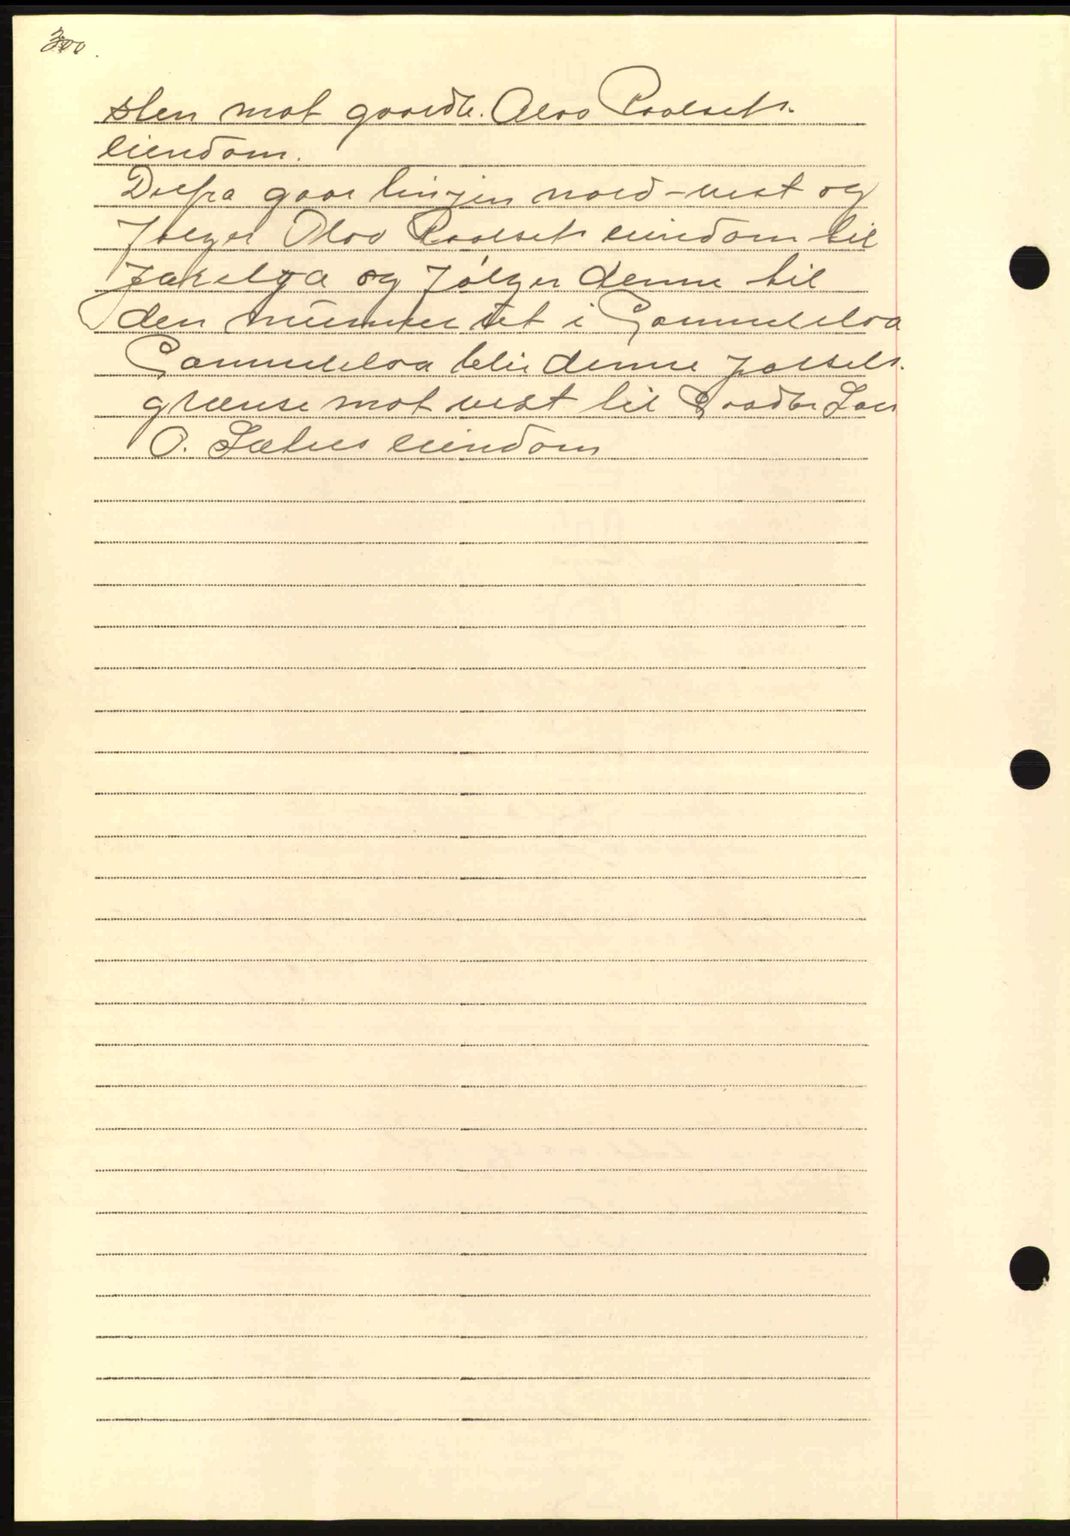 300.
sten mot gaardb. Olav Roalset's
eiendom.
Derfra gaar linjen nord-vest og
følger Olav Roalsets eiendom til
og følger denne til
den munner ut i Gammelelva
Gammelelva blir denne parsels
grænse mot vest til Gaardbr Lars
O. Sætres eiendom